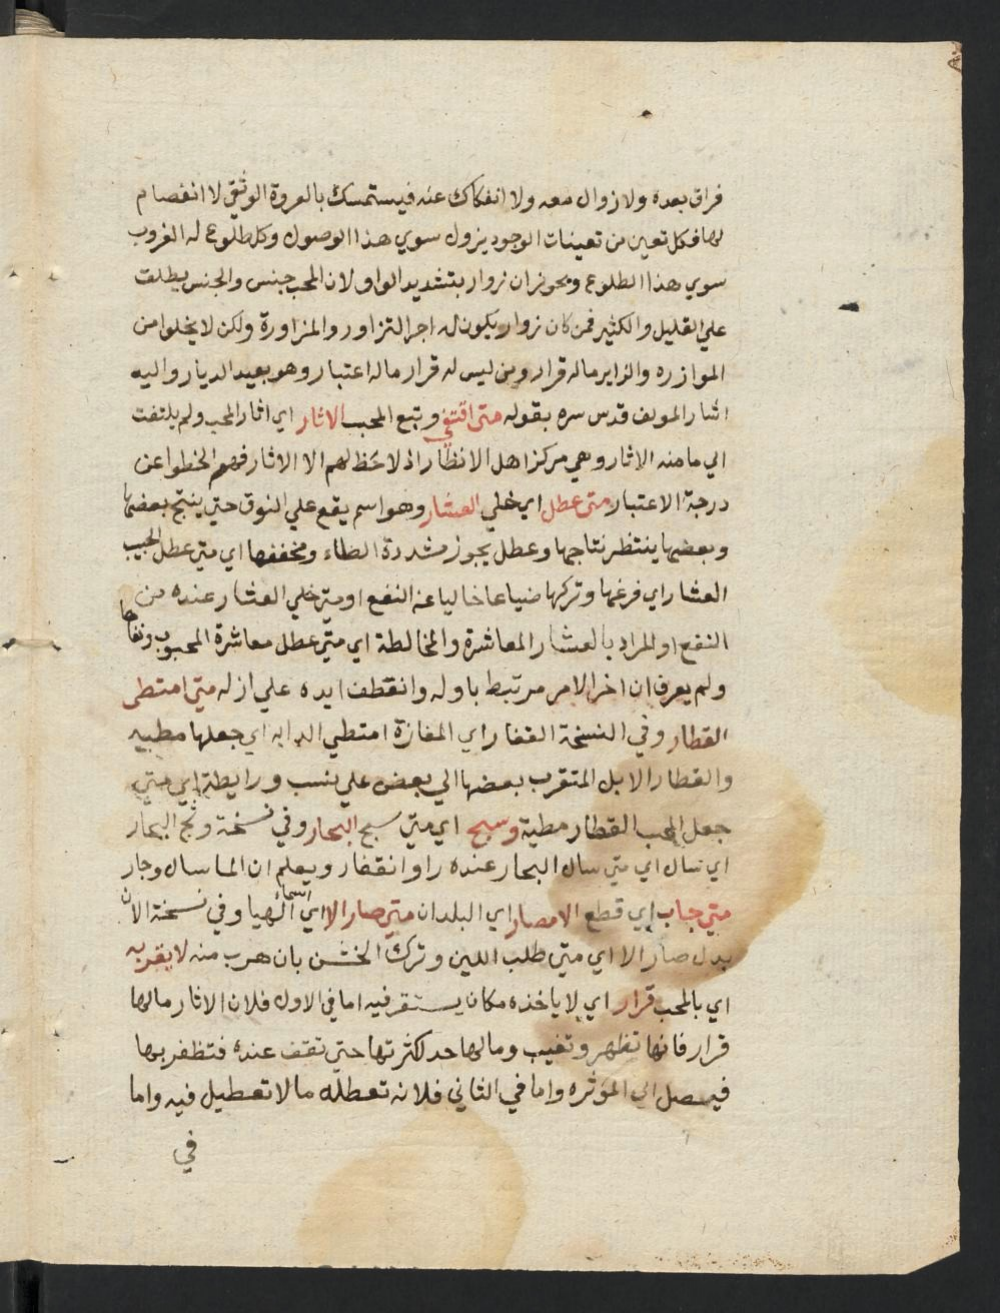 فراق بعده ولا زوال معه ولا انفكاك عنه فيستمسك بالعروة الوثقي لا انفصام
لها فكل تعين من تعينات الوجود يزول سوي هذا الوصول وكل طلوع له الغروب
سوي هذا الطلوع ويجوز ان زوار بتشديد الواو لان المحب جنس والجنس يطلق
علي القليل والكثير فمن كان زوار يكون له اجر التزاور والمزاورة ولكن لا يخلوا من
الموازره والزاير ماله قرار ومن ليس له قرار ماله اعتبار وهو بعيد الديار واليه
اشار المولف قدس سره بقوله متي اقتفي وتبع المحب الاثار اي اثار المحب ولم يلتفت
الي ما منه الاثار وهي مركز اهل الانظار اذ لا حظ لهم الا الاثار فهم الخطوا عن
درجة الاعتبار متي عطل اي خلي العشار وهو اسم يقع علي النوق حتي ينتج بعضها
وبعضها ينتظر نتاجها وعطل يجوز مشددة الطاء ومخففها اي متي عطل المحب
العشار اي فرغها وتركها ضياعا خاليا عن النفع او متي خلي العشار عنده من
النفع او المراد بالعشار المعاشرة والمخالطة اي متي عطل معاشرة المحبوب
ولم يعرف ان اخر الامر مرتبط باوله وانقطف ابده علي ازله متي امتطي
القطار وفي النسخة القفار اي المفازة امتطي الدابه اي جعلها مطيه
والقطار الابل المتقرب بعضها الي بعض علي نسب ورابطة اي متي
جعل المحب القطار مطية وسيح اي متي سيح البحار وفي نسخة وثج البحار
اي سال اي متي سال البحار عنده راو انقفار ويعلم ان الما سال وجار
متي جاب اي قطع الامصار اي البلدان متي صار الا اي الهيا وفي نسخة الان
بدل صار الا اي متي طلب اللين وترك الخشن بان هرب منه لا يقر به
اي بالمحب قرار اي لا ياخذه مكان يستقر فيه اما في الاول فلان الاثار مالها
قرار فانها تظهر وتغيب ومالها حد كثرتها حتي تقف عنده فتظفر بها
فيصل الي المؤثره واما في الثاني فلانه تعطله ما لا تعطيل فيه واما
في